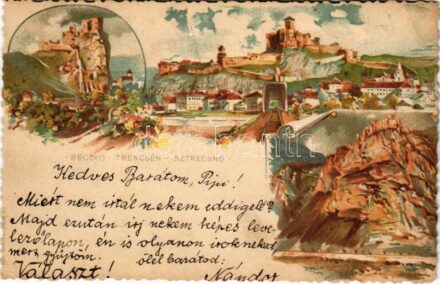 BECZKÓ - TRENCSÉN - SZTRECSNO
Kedves Baratom, Pipi!
Miért nem irtál nekem eddigelé?
Majd ezután irj nekem képes leve-
lezőlapon, én is olyanon irok neked
mert gyüjtöm. ölel barátod:
Választ! Nándor